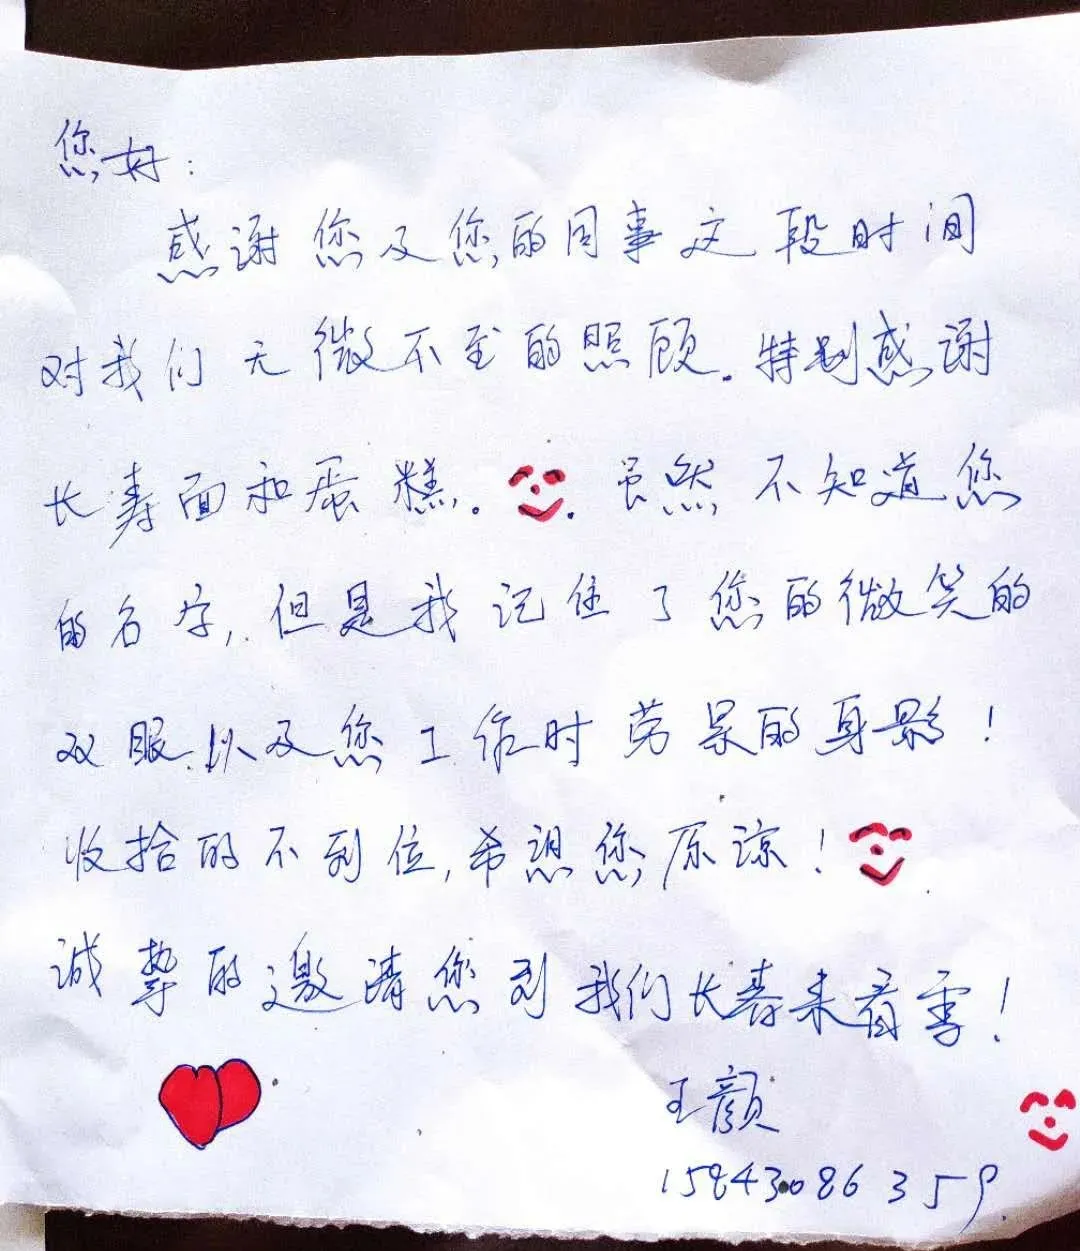 您好:
感谢您及您的同事这段时间
对我们无微不至的照顾。特别感谢
长寿面和蛋糕。虽然不知道您
的名字,但是我记住了您的微笑的
双眼以及您工作时劳累的身影!
收拾的不到位,希望您原谅!
诚挚的邀请您到我们长春来看雪!
王颜
15843086359